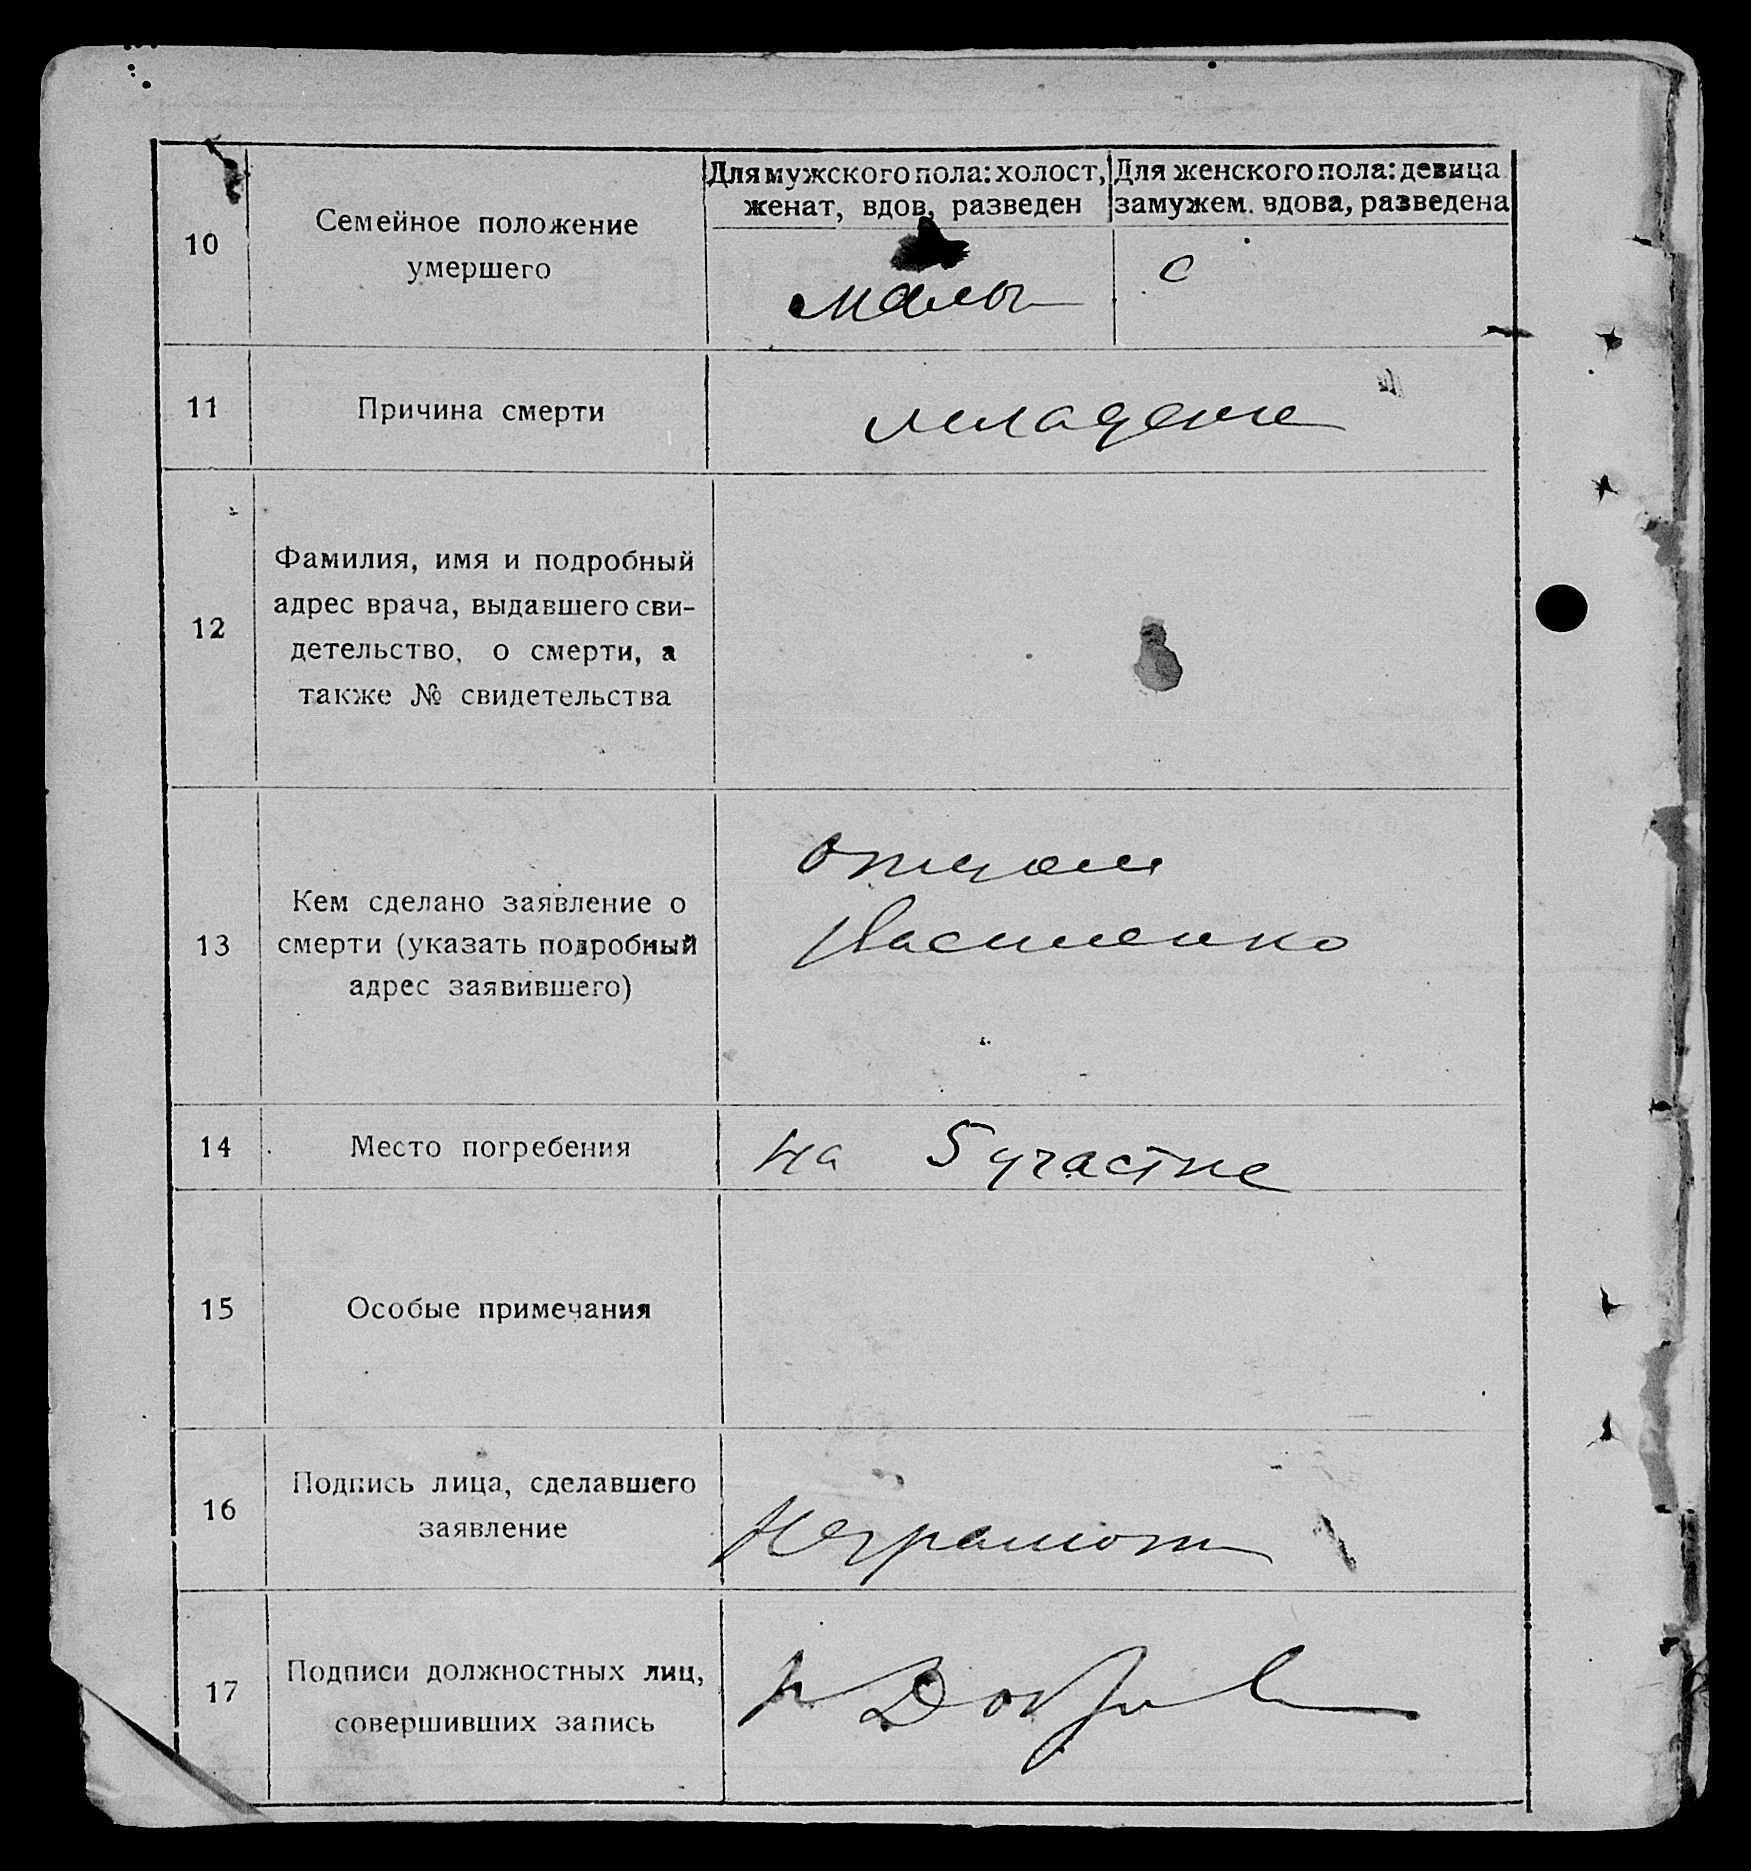 10
Семейное положение
умершего
Для мужского пола: холост,
женат, вдов, разведен
Для женского пола: девица
замужем. вдова, разведена
малы
с
11
Причина смерти
младенче
12
Фамилия, имя и подробный
адрес врача, выдавшего сви-
детельство, о смерти, а
также № свидетельства
13
Кем сделано заявление о
смерти (указать подробный
адрес заявившего)
отцом
Василенко
14
Место погребения
на 5 участке
15
Особые примечания
16
Подпись лица, сделавшего
заявление
Неграмотн
17
Подписи должностных лиц,
совершивших запись